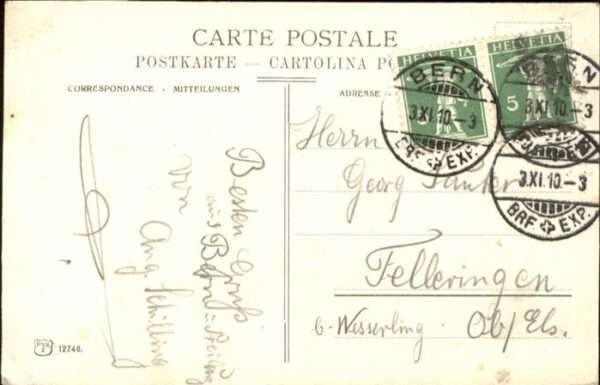 CARTE POSTALE
POSTKARTE — CARTOLINA PO
CORRESPONDANCE - MITTEILUNGEN
ADRESSE
HELVETIA
HELVETIA
5
BERN
3.XI.10-3
BRF. EXP.
BERN
3.XI.10-3
3.XI.10-3
BRF. EXP.
Besten Gruß
aus Bern u.
von
Aug. Schilling
Herrn
Georg
Felleringen
b-Wesserling Ob/Els.
12740.